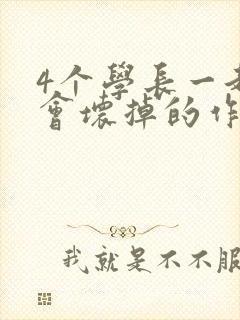 4个學長一起
會壞掉的作
我就是不不服